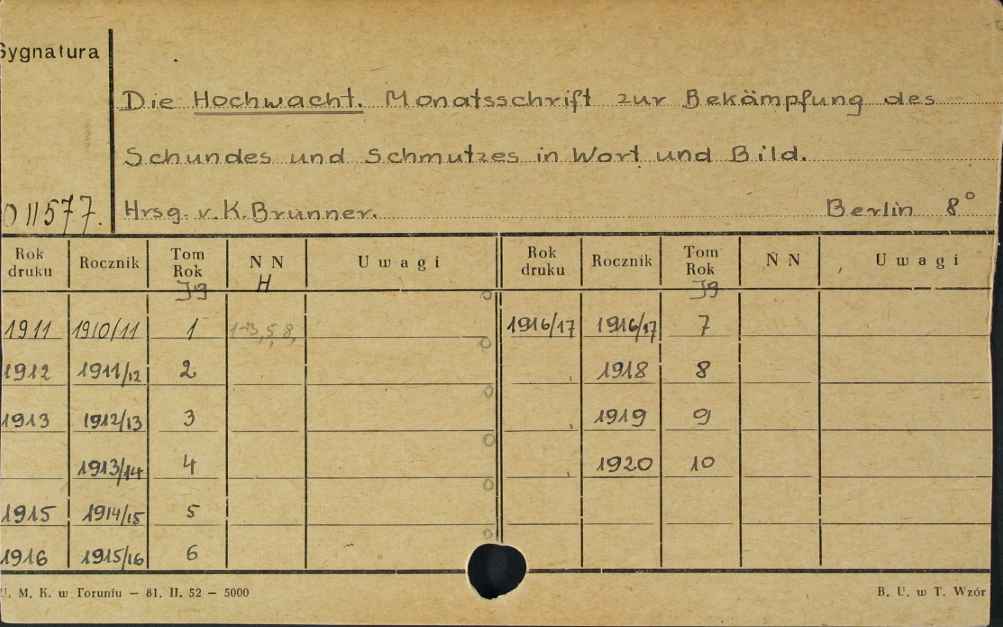 Sygnatura
Die Hochwacht. Monatsschrift zur Bekämpfung des
Schundes und Schmutzes in Wort und Bild.
011577. Hrsg. v. K. Brunner. Berlin 8°
Rok druku Rocznik Tom Rok NN Uwagi Rok druku Rocznik Tom Rok NN Uwagi
Jg H Jg
1911 1910/11 1 1-3, 5, 8, 1916/17 1916/17 7
1912 1911/12 2 1918 8
1913 1912/13 3 1919 9
1913/14 4 1920 10
1915 1914/15 5
1916 1915/16 6
U. M. K. w Toruniu — 81. II. 52 — 5000 B. U. w T. Wzór